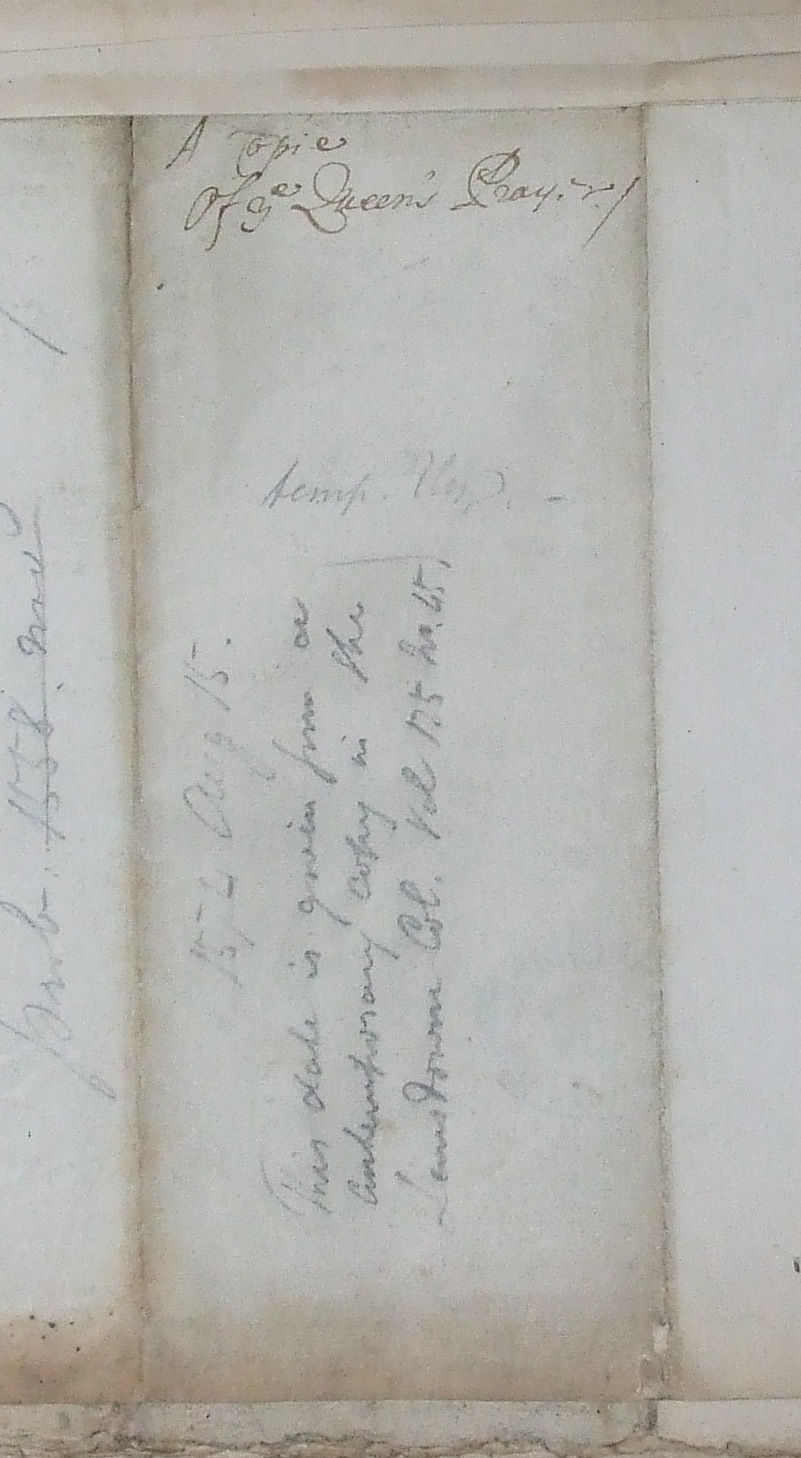 A Copie
Of yͤ Queen's Prayer./
temp. Eliz. -
1574 Aug 15.
This date is given from a
Contemporary copy in the
Lansdowne Col. Vol 115 No. 45.
Prob. 1558. Nov